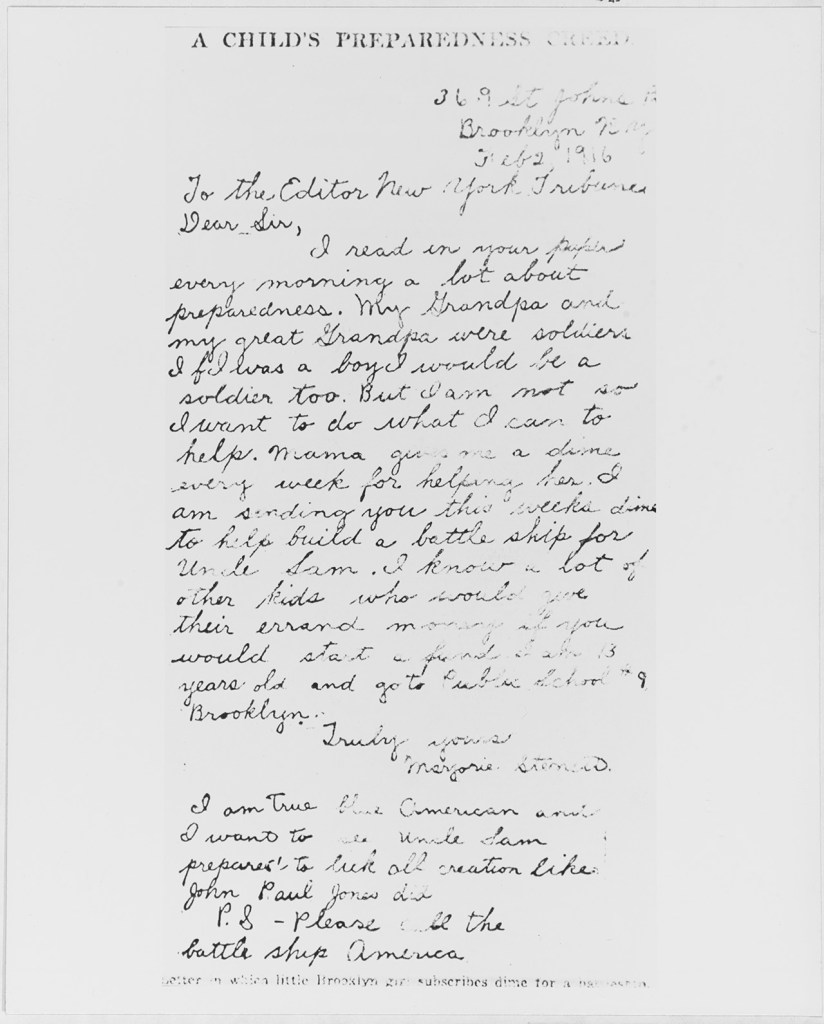 A CHILD'S PREPAREDNESS CREED.
369 St Johns P
Brooklyn N Y
Feb 2, 1916
To the Editor New York Tribune
Dear Sir,
I read in your paper
every morning a lot about
preparedness. My Grandpa and
my great Grandpa were soldiers
If I was a boy I would be a
soldier too. But I am not so
I want to do what I can to
help. Mama gives me a dime
every week for helping her. I
am sending you this weeks dime
to help build a battle ship for
Uncle Sam. I know a lot of
other kids who would give
their errand money if you
would start a fund I am 13
years old and go to Public School #9
Brooklyn.
Truly yours
Marjorie
I am true blue American and
I want to see Uncle Sam
prepared to lick all creation like
John Paul Jones did
P.S - Please call the
battle ship America
Letter in which little Brooklyn girl subscribes dime for a